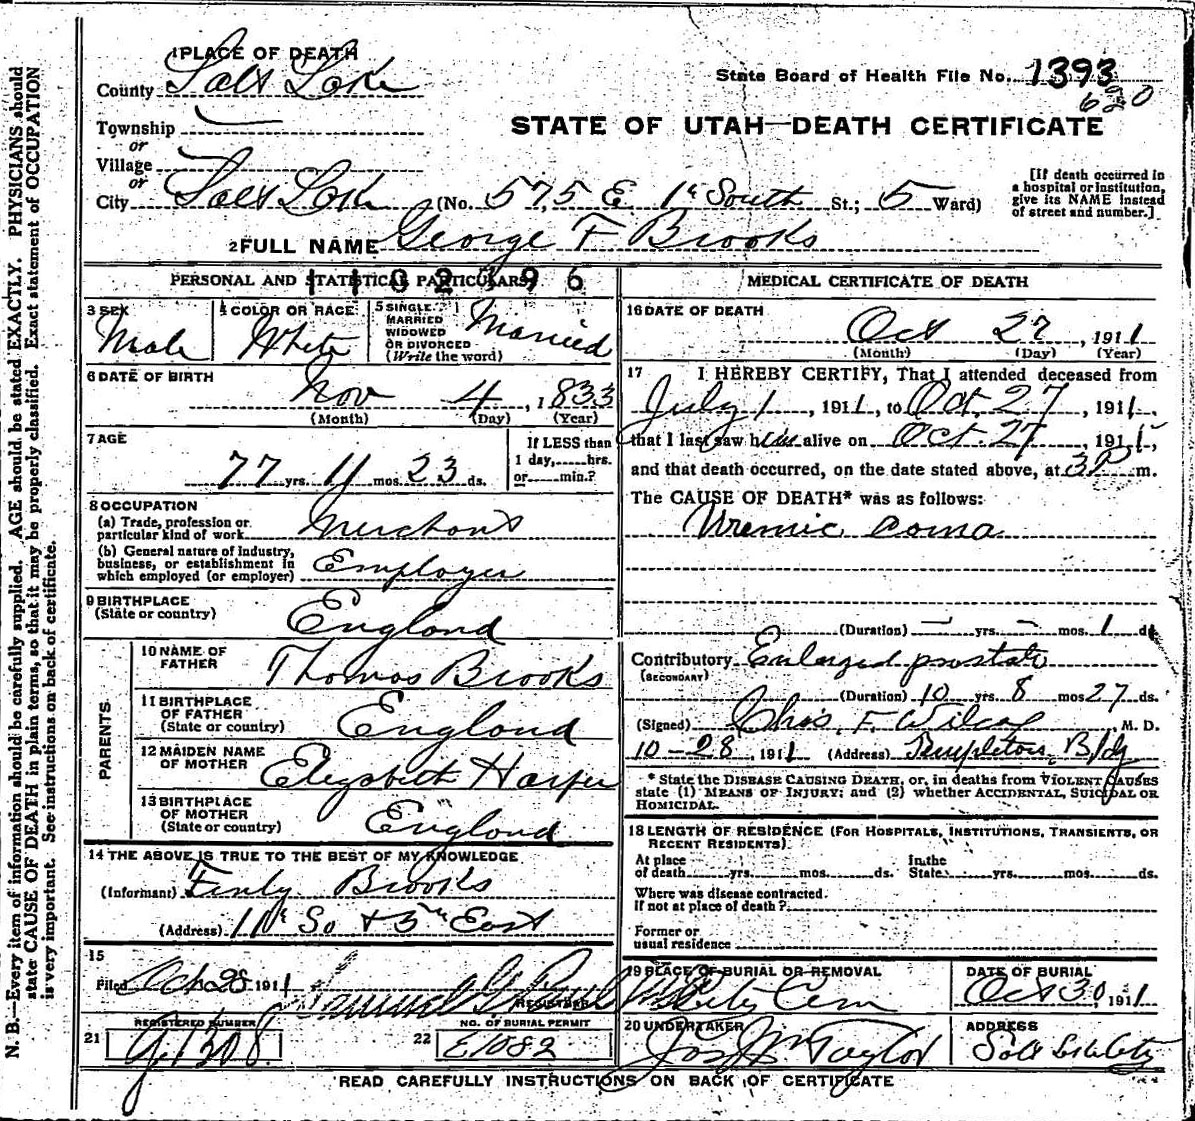 1 PLACE OF DEATH
County Salt Lake
State Board of Health File No. 1393
620
Township
or
STATE OF UTAH—DEATH CERTIFICATE
Village
or
City Salt Lake (No. 575 E 1st South St.; 5 Ward)
[If death occurred in
a hospital or institution,
give its NAME instead
of street and number.]
2 FULL NAME George F Brooks
1102396
PERSONAL AND STATISTICAL PARTICULARS
3 SEX
Male
4 COLOR OR RACE
White
5 SINGLE
MARRIED
WIDOWED
OR DIVORCED
(Write the word)
Married
6 DATE OF BIRTH
Nov 4, 1833
(Month) (Day) (Year)
7 AGE
77 yrs. 11 mos. 23 ds.
If LESS than
1 day,.....hrs.
or.....min.?
8 OCCUPATION
(a) Trade, profession or
particular kind of work Merchant
(b) General nature of industry,
business, or establishment in
which employed (or employer) Employer
9 BIRTHPLACE
(State or country) England
PARENTS
10 NAME OF
FATHER Thomas Brooks
11 BIRTHPLACE
OF FATHER
(State or country) England
12 MAIDEN NAME
OF MOTHER Elizabeth Harper
13 BIRTHPLACE
OF MOTHER
(State or country) England
14 THE ABOVE IS TRUE TO THE BEST OF MY KNOWLEDGE
(Informant) Brooks
(Address) So + 5th East
15
Filed Oct 28 1911 Samuel G.
REGISTRAR
REGISTERED NUMBER
21 1308
NO. OF BURIAL PERMIT
22 E1082
MEDICAL CERTIFICATE OF DEATH
16 DATE OF DEATH
Oct 27, 1911
(Month) (Day) (Year)
17 I HEREBY CERTIFY, That I attended deceased from
July 1, 1911, to Oct. 27, 1911.
that I last saw him alive on Oct 27, 1911,
and that death occurred, on the date stated above, at 3P m.
The CAUSE OF DEATH* was as follows:
Uremic coma
(Duration) — yrs. — mos. 1 ds.
Contributory Enlarged prostate
(SECONDARY)
(Duration) 10 yrs. 8 mos. 27 ds.
(Signed) Chas. F. Wilcox M. D.
10-28, 1911 (Address) Templeton Bldg
* State the DISEASE CAUSING DEATH, or, in deaths from VIOLENT CAUSES
state (1) MEANS OF INJURY; and (2) whether ACCIDENTAL, SUICIDAL OR
HOMICIDAL.
18 LENGTH OF RESIDENCE (FOR HOSPITALS, INSTITUTIONS, TRANSIENTS, OR
RECENT RESIDENTS)
At place
of death.....yrs.....mos.....ds.
In the
State.....yrs.....mos.....ds.
Where was disease contracted.
If not at place of death?
Former or
usual residence
19 PLACE OF BURIAL OR REMOVAL
City Cem
DATE OF BURIAL
Oct 30, 1911
20 UNDERTAKER
Jos Wm Taylor
ADDRESS
Salt Lake City
READ CAREFULLY INSTRUCTIONS ON BACK OF CERTIFICATE
N. B.—Every item of information should be carefully supplied. AGE should be stated EXACTLY. PHYSICIANS should
state CAUSE OF DEATH in plain terms, so that it may be properly classified. Exact statement of OCCUPATION
is very important. See instructions on back of certificate.